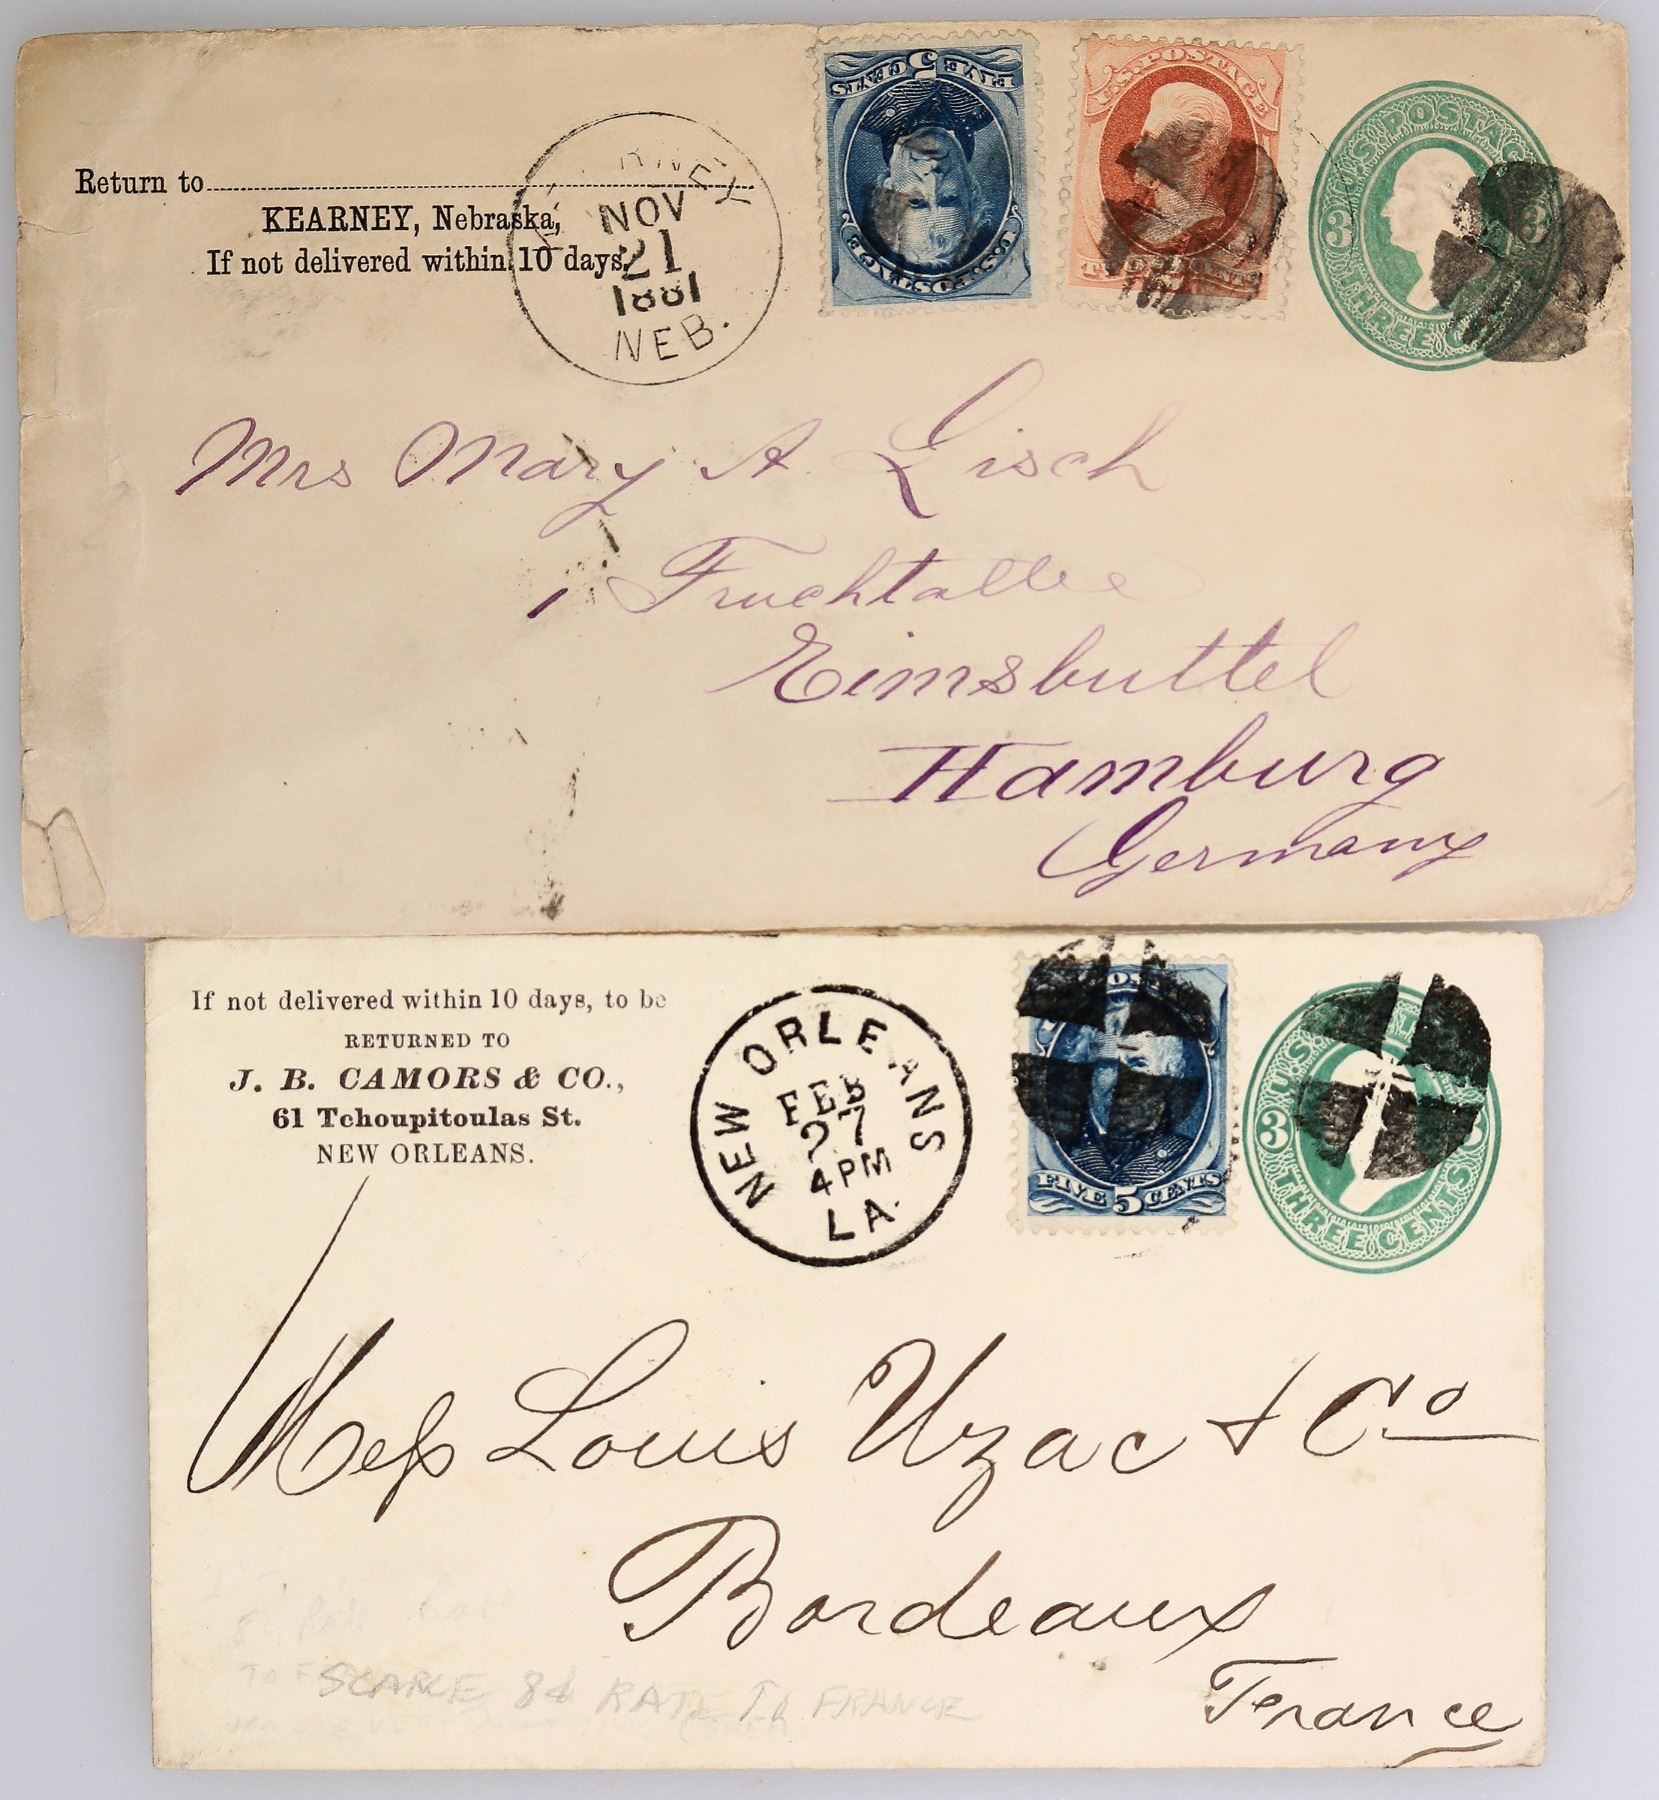 FIVE 5 CENTS
U.S. POSTAGE
U.S. POSTAGE
TWO 2 CENTS
U.S. POSTAGE
3 3
THREE CENTS
Return to
KEARNEY, Nebraska,
If not delivered within 10 days.
KEARNEY
NOV
21
1881
NEB.
Mrs Mary A. Lisch
1 Fruchtallee
Eimsbuttel
Hamburg
Germany
If not delivered within 10 days, to be
RETURNED TO
J. B. CAMORS & CO.,
61 Tchoupitoulas St.
NEW ORLEANS.
NEW ORLEANS
FEB
27
4 PM
LA.
FIVE 5 CENTS
3 3
THREE CENTS
Mess Louis Uzac & Co
Bordeaux
France
8¢ Rate
SCARCE 8¢ RATE TO FRANCE